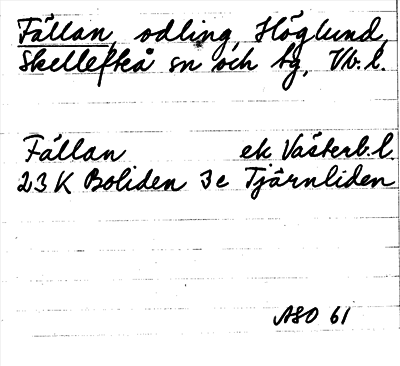 Fällan, odling, Höglund,
Skellefteå sn och tg, Vb. l.
Fällan ek Västerb. l.
23 K Boliden 3e Tjärnliden
ASO 61